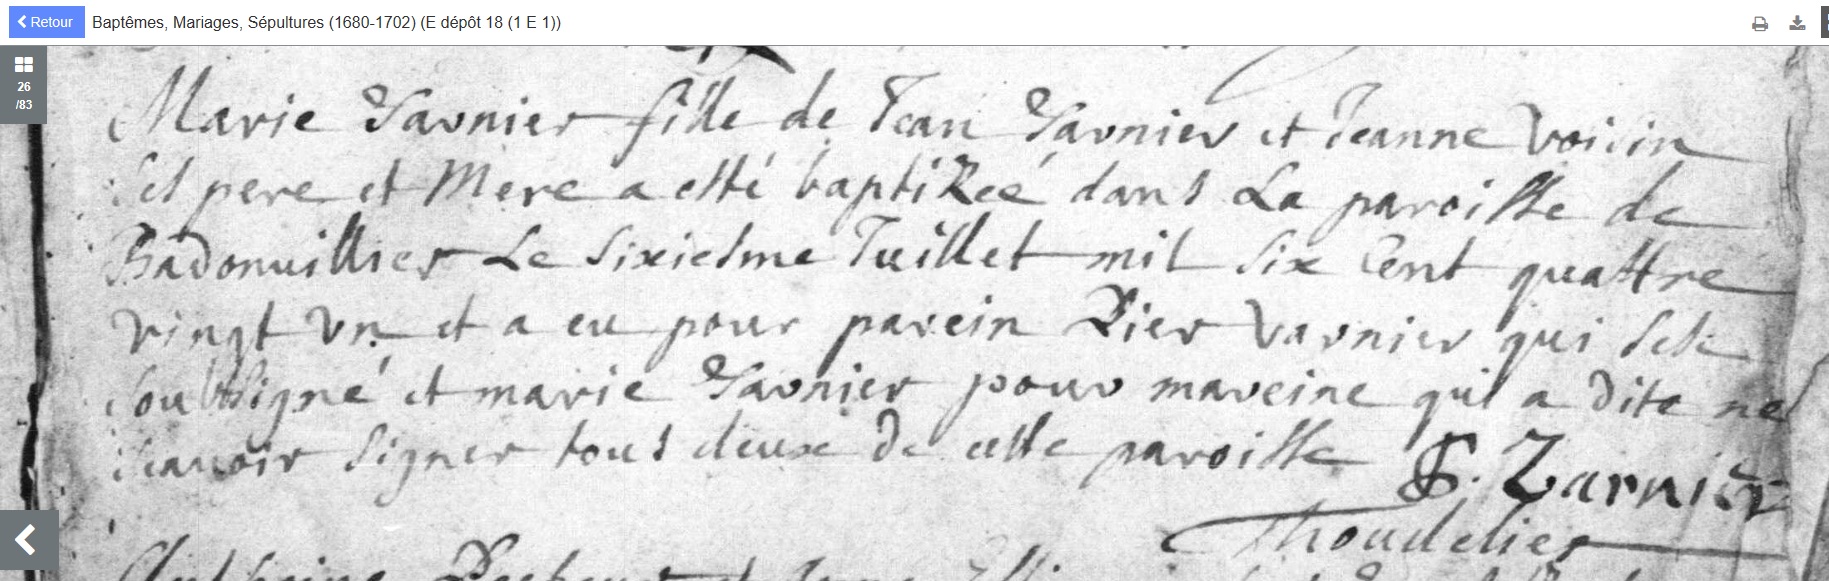 Retour Baptêmes, Mariages, Sépultures (1680-1702) (E dépôt 18 (1 E 1))
26
/83
Marie Varnier fille de Jean Varnier et Jeanne Voisin
ses pere et Mere a esté baptizeé dans La paroisse de
Badonuillier Le sixiesme Juillet mil six Cent quattre
vingt vn et a eu pour parein Pier Varnier qui sest
soubsigné et marie Varnier pour mareine qui a dite ne
scauoir signer tous deux de cette paroisse P. Varnier